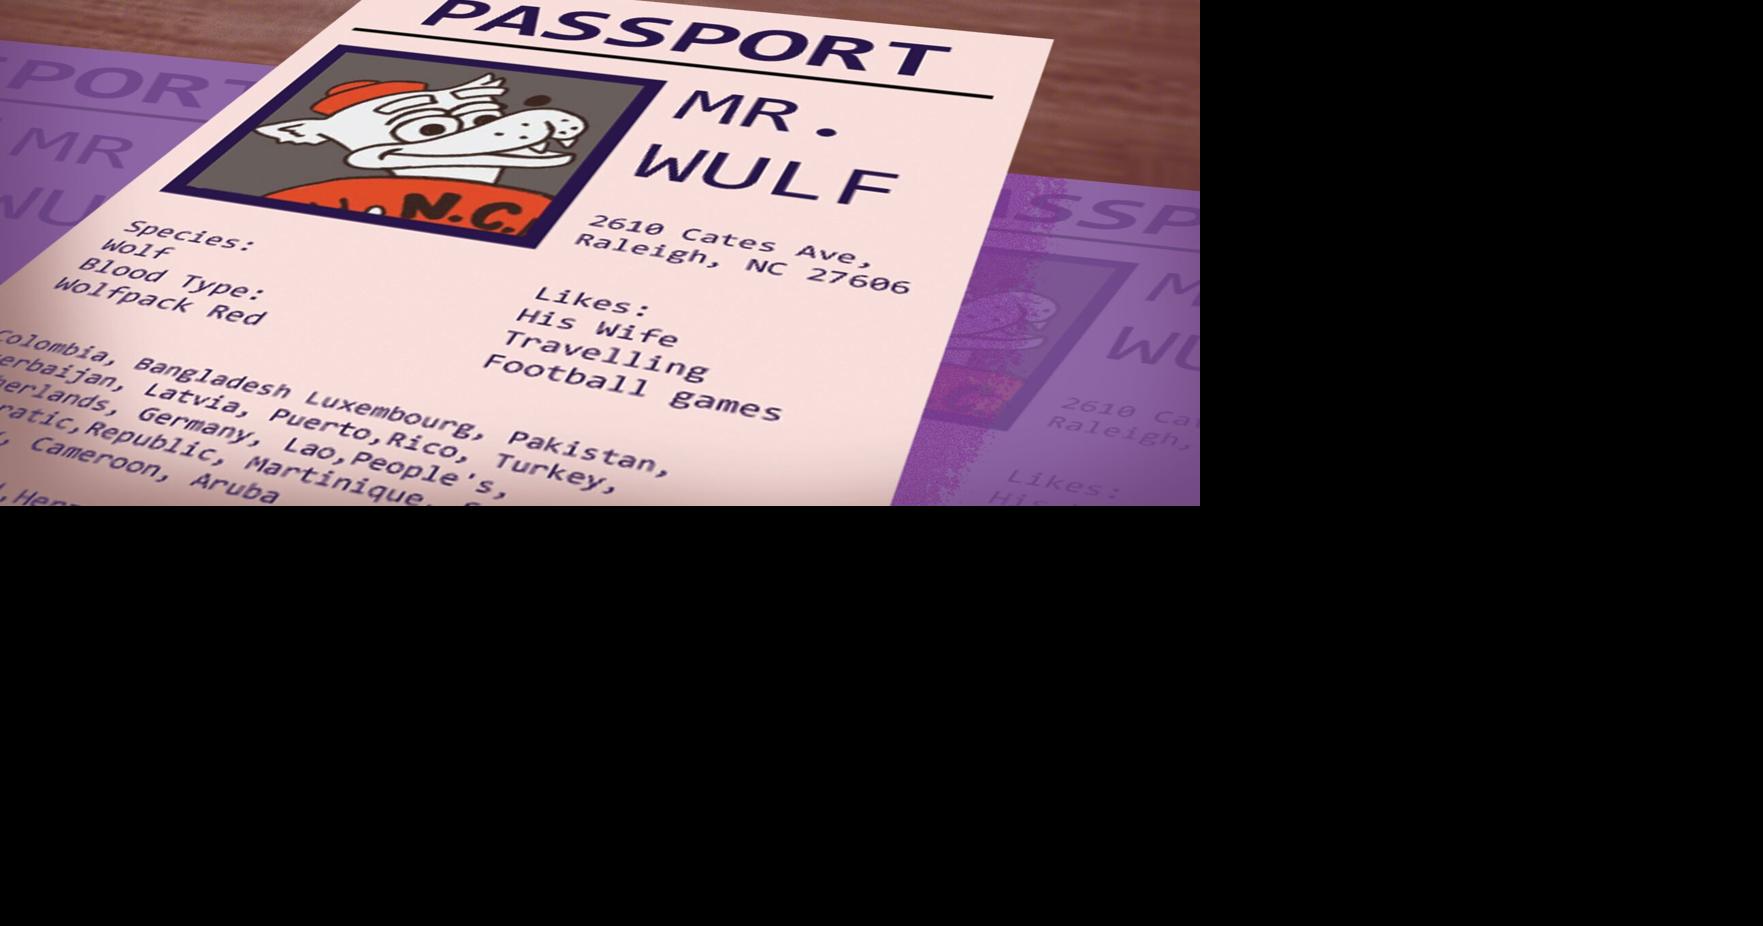 PASSPORT
MR.
WULF
N.C.
2610 Cates Ave,
Raleigh, NC 27606
Species:
Wolf
Blood Type:
Wolfpack Red
Likes:
His Wife
Travelling
Football games
Colombia, Bangladesh Luxembourg, Pakistan,
Latvia, Puerto,Rico, Turkey,
Germany, Lao,People's,
Republic, Martinique,
Cameroon, Aruba
PORT
MR
WU
ASSP
M
WU
2610 Cat
Raleigh,
Likes:
His